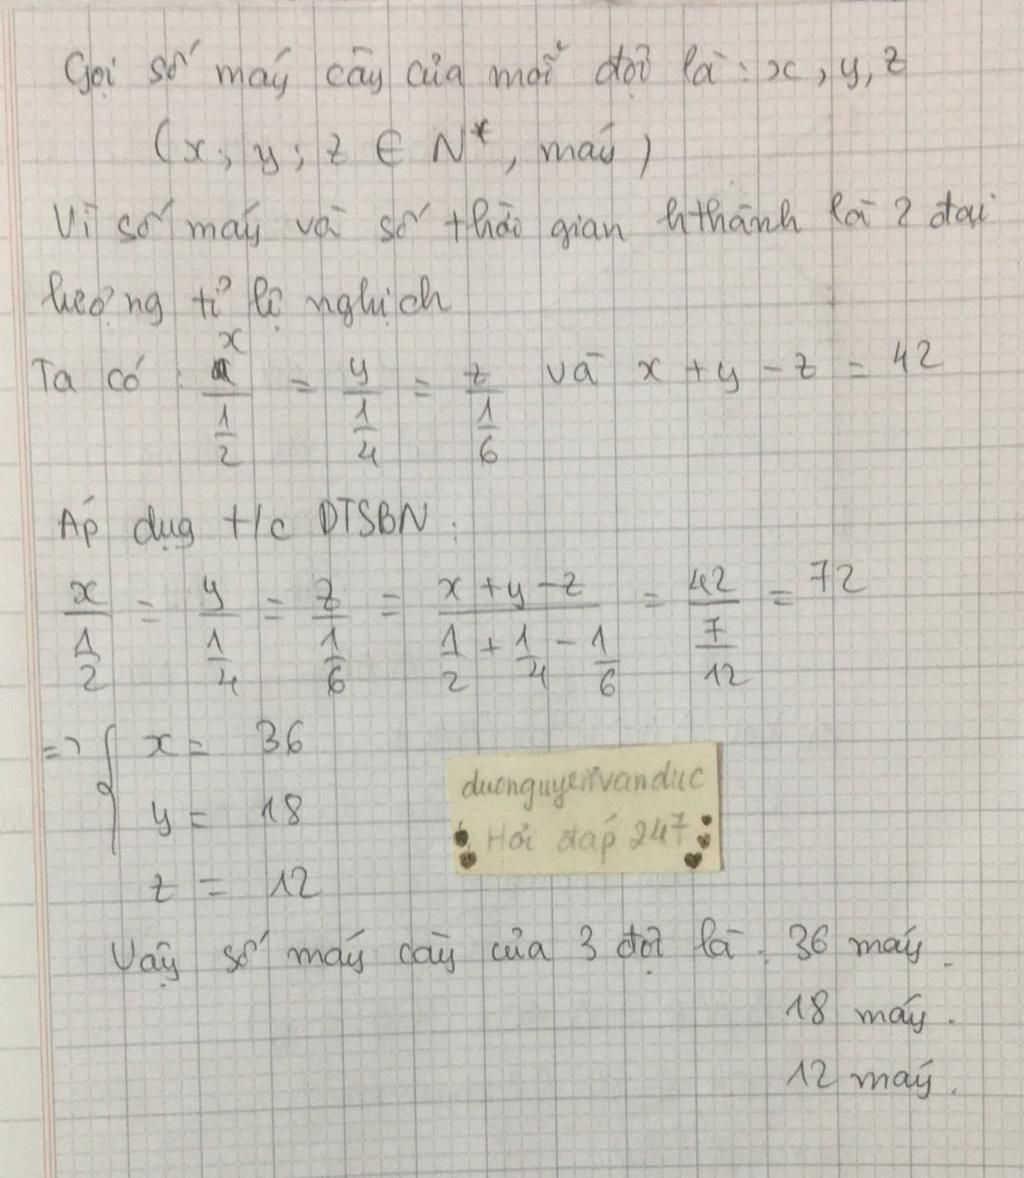 Gọi số máy cày của mỗi đội là : x, y, z
(x; y; z ∈ N*, máy)
Vì số máy và số thời gian hthành là 2 đại
lượng tỉ lệ nghịch
Ta có : x/(1/2) = y/(1/4) = z/(1/6) và x + y - z = 42
Áp dụg t/c DTSBN :
x/(1/2) = y/(1/4) = z/(1/6) = (x + y - z)/(1/2 + 1/4 - 1/6) = 42/(7/12) = 72
=> { x = 36
y = 18
z = 12
ducnguyenvanduc
Hỏi đáp 247
Vậy số máy cày của 3 đội là : 36 máy.
18 máy.
12 máy.